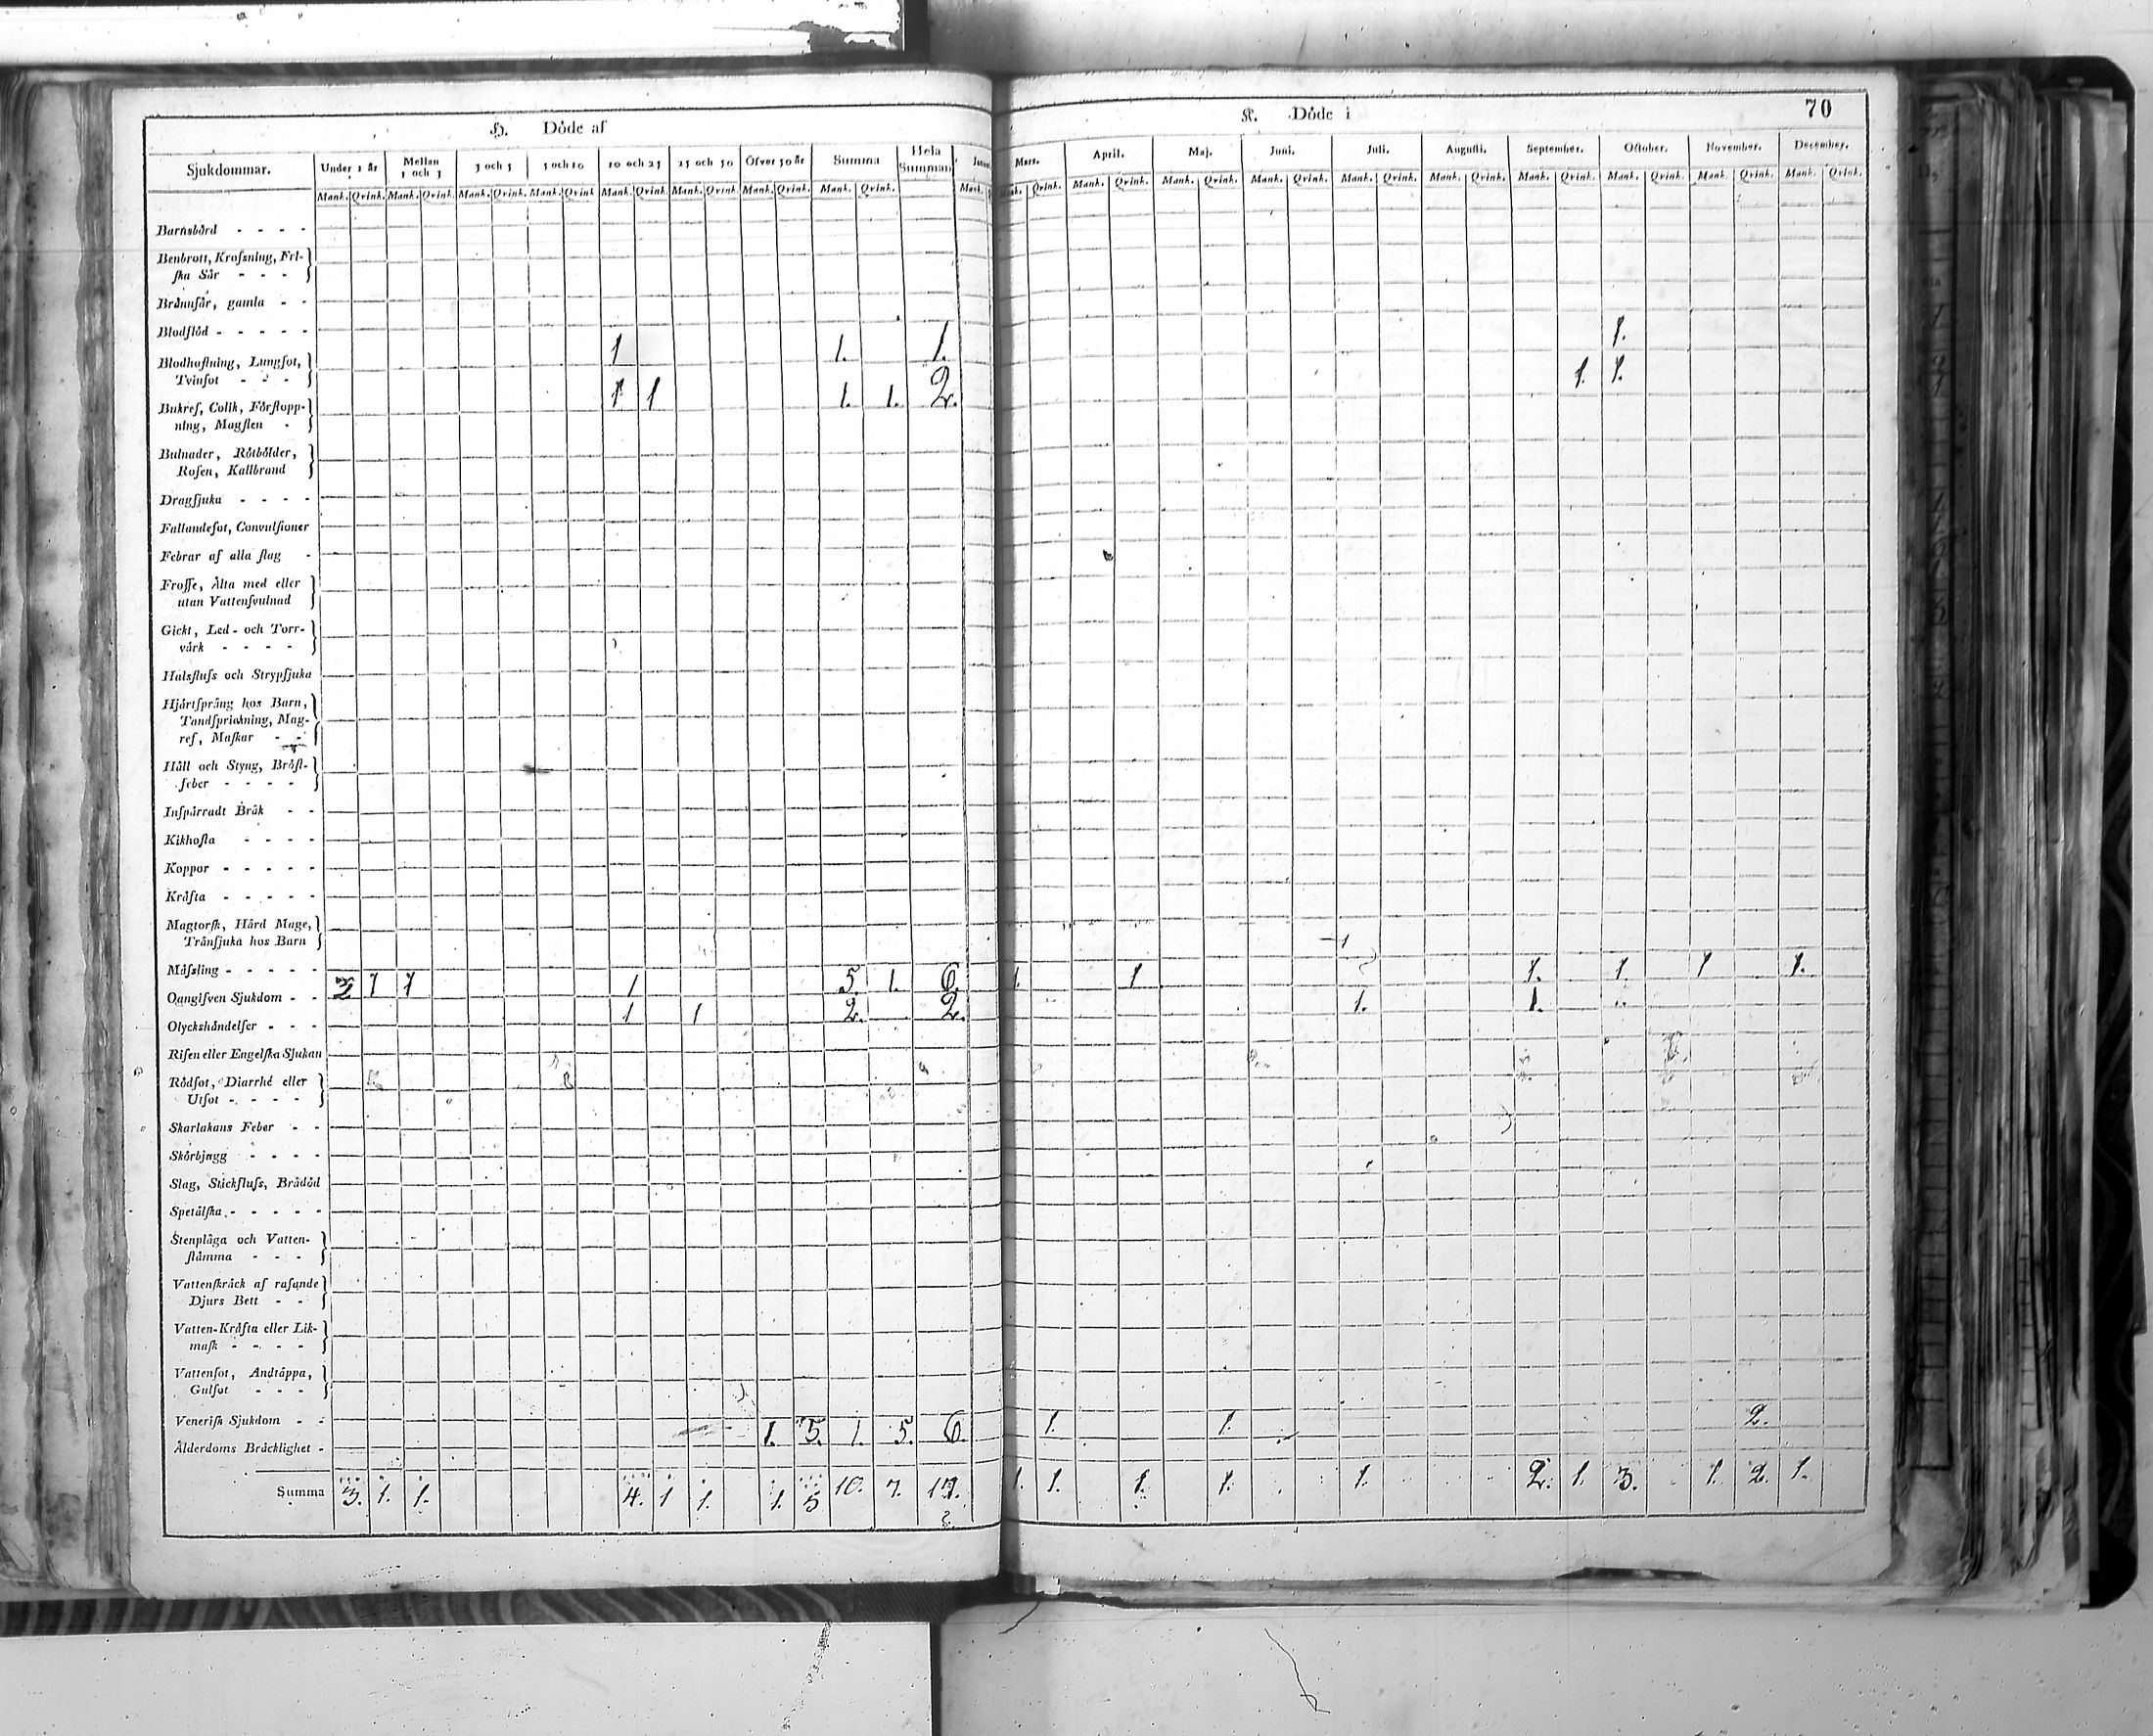 H. Döde af
K. Döde i 70
Sjukdommar. Under 1 år Mellan 1 och 3 3 och 5 5 och 10 10 och 25 25 och 50 Öfver 50 år Summa Hela Summan
Mars. April. Maj. Juni. Juli. Augusti. September. October. November. December.
Mank. Qvink. Mank. Qvink. Mank. Qvink. Mank. Qvink. Mank. Qvink. Mank. Qvink. Mank. Qvink. Mank. Qvink. Mank.
Qvink. Mank. Qvink. Mank. Qvink. Mank. Qvink. Mank. Qvink. Mank. Qvink. Mank. Qvink. Mank. Qvink. Mank. Qvink. Mank. Qvink.
Barnsbörd - - - -
Benbrott, Krofsning, Fri-
ſka Sår - - -
Brännſår, gamla - -
Blodflöd - - - - -
1 1. 1. 1.
Blodhoſtning, Lungſot,
Tvinſot - - -
1 1 1. 1. 2. 1. 1.
Bukref, Colik, Förſtopp-
ning, Magſten -
Bulnader, Rötbölder,
Roſen, Kallbrand
Dragſjuka - - - -
Fallandeſot, Convulſioner
Febrar af alla ſlag -
Froſſe, Älta med eller
utan Vattenſvulnad
Gickt, Led- och Torr-
värk - - - -
Halsfluſs och Strypſjuka
Hjärtſpräng hos Barn,
Tandſprickning, Mag-
ref, Maſkar - -
Håll och Styng, Bröſt-
feber - - - -
Inſpärradt Bråk - -
Kikhoſta - - - -
Koppor - - - - -
Kräfta - - - - -
Magtorſk, Hård Mage,
Tränſjuka hos Barn
Måſsling - - - - -
2 1 1 1 5. 1. 6. 1. 1 1. 1. 1 1.
Oangifven Sjukdom - -
1 1 2. 2. 1. 1.
Olyckshändelſer - - -
Riſen eller Engelſka Sjukan
Rödſot, Diarrhé eller
Utſot - - - -
Skarlakans Feber - -
Skörbjugg - - - -
Slag, Stickfluſs, Brådöd
Spetälſka - - - - -
Stenplåga och Vatten-
ſtämma - - -
Vattenſkräck af raſande
Djurs Bett - -
Vatten-Kräfta eller Lik-
maſk - - - -
Vattenſot, Andtäppa,
Gulſot - - -
Veneriſk Sjukdom - -
1. 5. 1. 5. 6. 1. 1. 2.
Ålderdoms Bräcklighet -
Summa 3. 1. 1. 4. 1 1. 1. 5 10. 7. 17. 1. 1. 1. 1. 1. 2. 1. 3. 1. 2. 1.